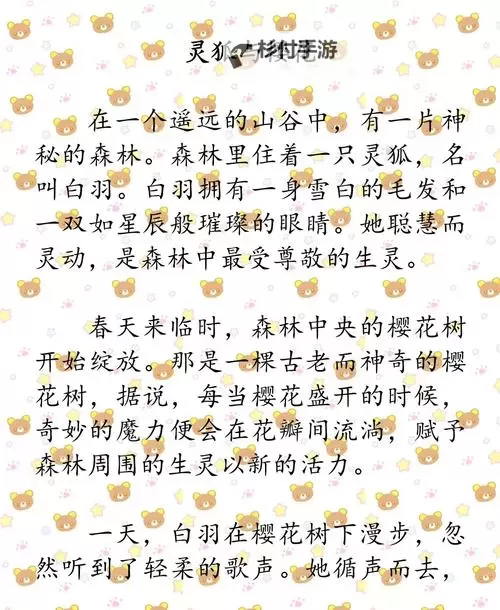 灵狐与樱花
杉付手游
在一个遥远的山谷中，有一片神
秘的森林。森林里住着一只灵狐，名
叫白羽。白羽拥有一身雪白的毛发和
一双如星辰般璀璨的眼睛。她聪慧而
灵动，是森林中最受尊敬的生灵。
春天来临时，森林中央的樱花树
开始绽放。那是一棵古老而神奇的樱
花树，据说，每当樱花盛开的时候，
奇妙的魔力便会在花瓣间流淌，赋予
森林周围的生灵以新的活力。
一天，白羽在樱花树下漫步，忽
然听到了轻柔的歌声。她循声而去，